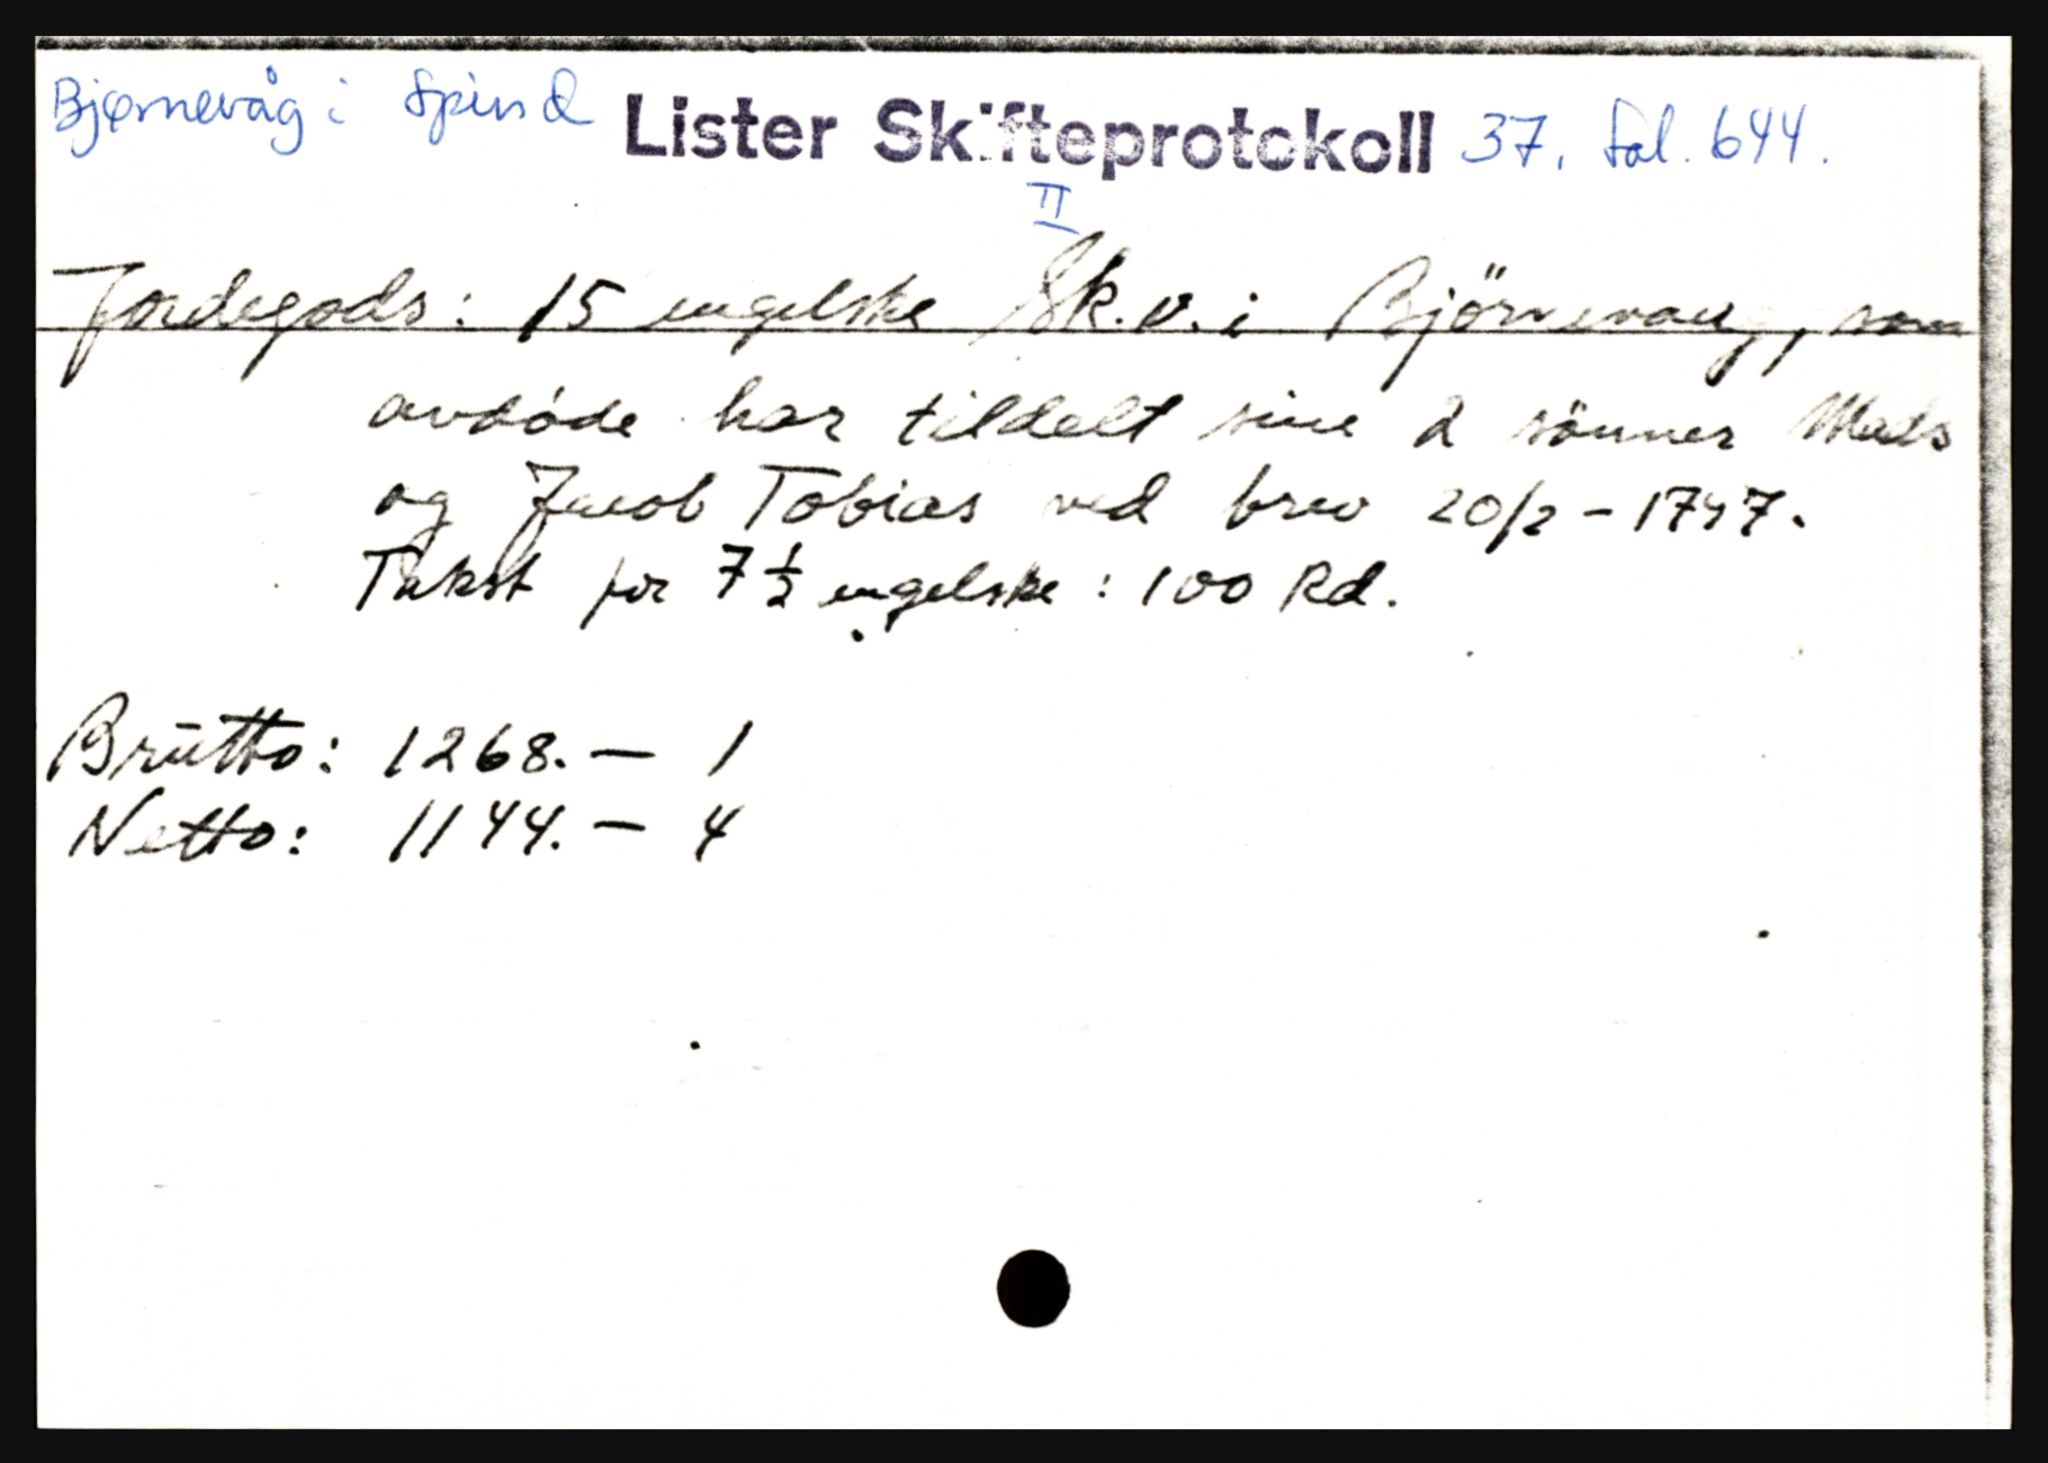 Bjørnevåg i Spind Lister Skifteprotokoll 37. fol. 644.
II
Jordegods: 15 engelske Sk. v. i Björnevaug, som
avdøde har tildelt sine 2 sönner Mads
og Jacob Tobias ved brev 20/2 - 1747.
Takst for 7 ½ engelske : 100 Rd.
Brutto: 1268. — 1
Netto: 1144. — 4